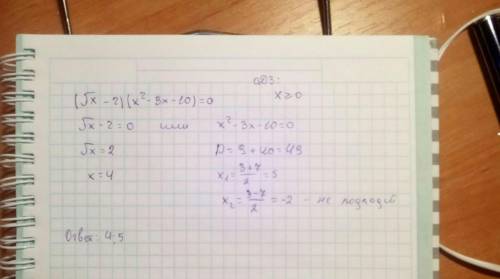 ОДЗ:
(√x - 2)(x² - 3x - 10) = 0 x ≥ 0
√x - 2 = 0 или x² - 3x - 10 = 0
√x = 2 D = 9 + 40 = 49
x = 4 x₁ = (3+7)/2 = 5
x₂ = (3-7)/2 = -2 - не подходит
Ответ: 4; 5